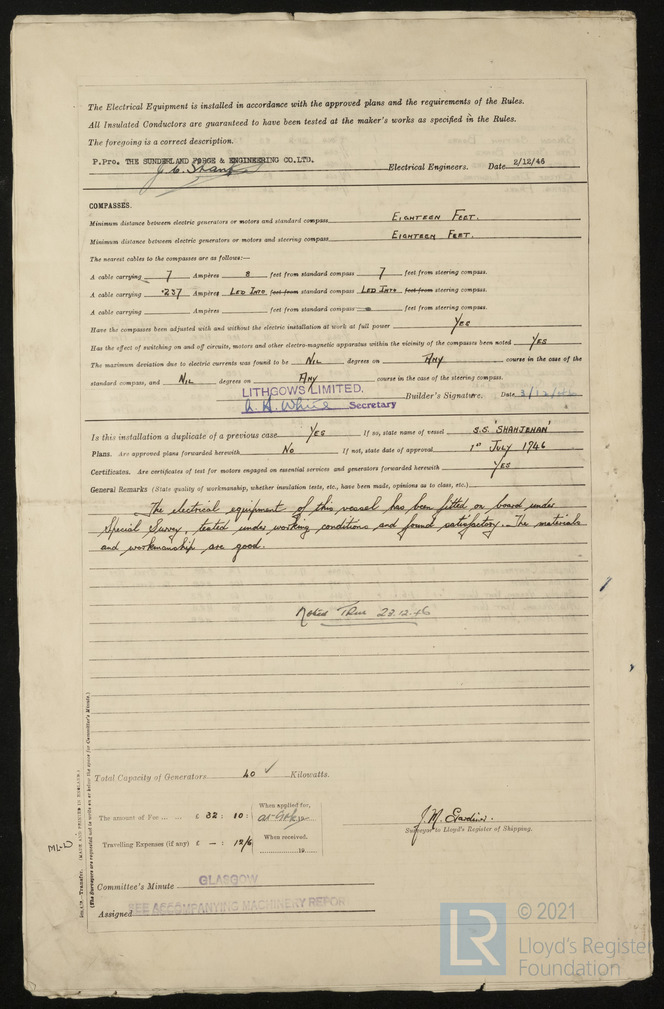 The Electrical Equipment is installed in accordance with the approved plans and the requirements of the Rules.
All Insulated Conductors are guaranteed to have been tested at the maker's works as specified in the Rules.
The foregoing is a correct description.
P.Pro. THE SUNDERLAND FORGE & ENGINEERING CO.LTD. Electrical Engineers. Date 2/12/46
COMPASSES.
Minimum distance between electric generators or motors and standard compass EIGHTEEN FEET.
Minimum distance between electric generators or motors and steering compass EIGHTEEN FEET.
The nearest cables to the compasses are as follows:—
A cable carrying 7 Ampères 8 feet from standard compass 7 feet from steering compass.
A cable carrying ·237 Ampères LED INTO feet from standard compass LED INTO feet from steering compass.
A cable carrying Ampères feet from standard compass feet from steering compass.
Have the compasses been adjusted with and without the electric installation at work at full power YES
Has the effect of switching on and off circuits, motors and other electro-magnetic apparatus within the vicinity of the compasses been noted YES
The maximum deviation due to electric currents was found to be NIL degrees on ANY course in the case of the
standard compass, and NIL degrees on ANY course in the case of the steering compass.
LITHGOWS LIMITED.
A. H. White Secretary Builder's Signature. Date 3/12/46
Is this installation a duplicate of a previous case YES If so, state name of vessel S.S. 'SHAHJEHAN'
Plans. Are approved plans forwarded herewith NO If not, state date of approval 1st JULY 1946
Certificates. Are certificates of test for motors engaged on essential services and generators forwarded herewith YES
General Remarks (State quality of workmanship, whether insulation tests, etc., have been made, opinions as to class, etc.)
The electrical equipment of this vessel has been fitted on board under
Special Survey, tested under working conditions and found satisfactory. The materials
and workmanship are good.
Noted 23.12.46
Total Capacity of Generators 40 ✓ Kilowatts.
The amount of Fee ... ... £ 32 : 10 : When applied for,
Travelling Expenses (if any) £ — : 12/6 When received, 19
J. M. Gardiner.
Surveyor to Lloyd's Register of Shipping.
Committee's Minute GLASGOW
Assigned SEE ACCOMPANYING MACHINERY REPOR
(The Surveyors are requested not to write on or below the space for Committee's Minute.)
Transfer. (MADE AND PRINTED IN ENGLAND.)
LR
© 2021
Lloyd's Register
Foundation